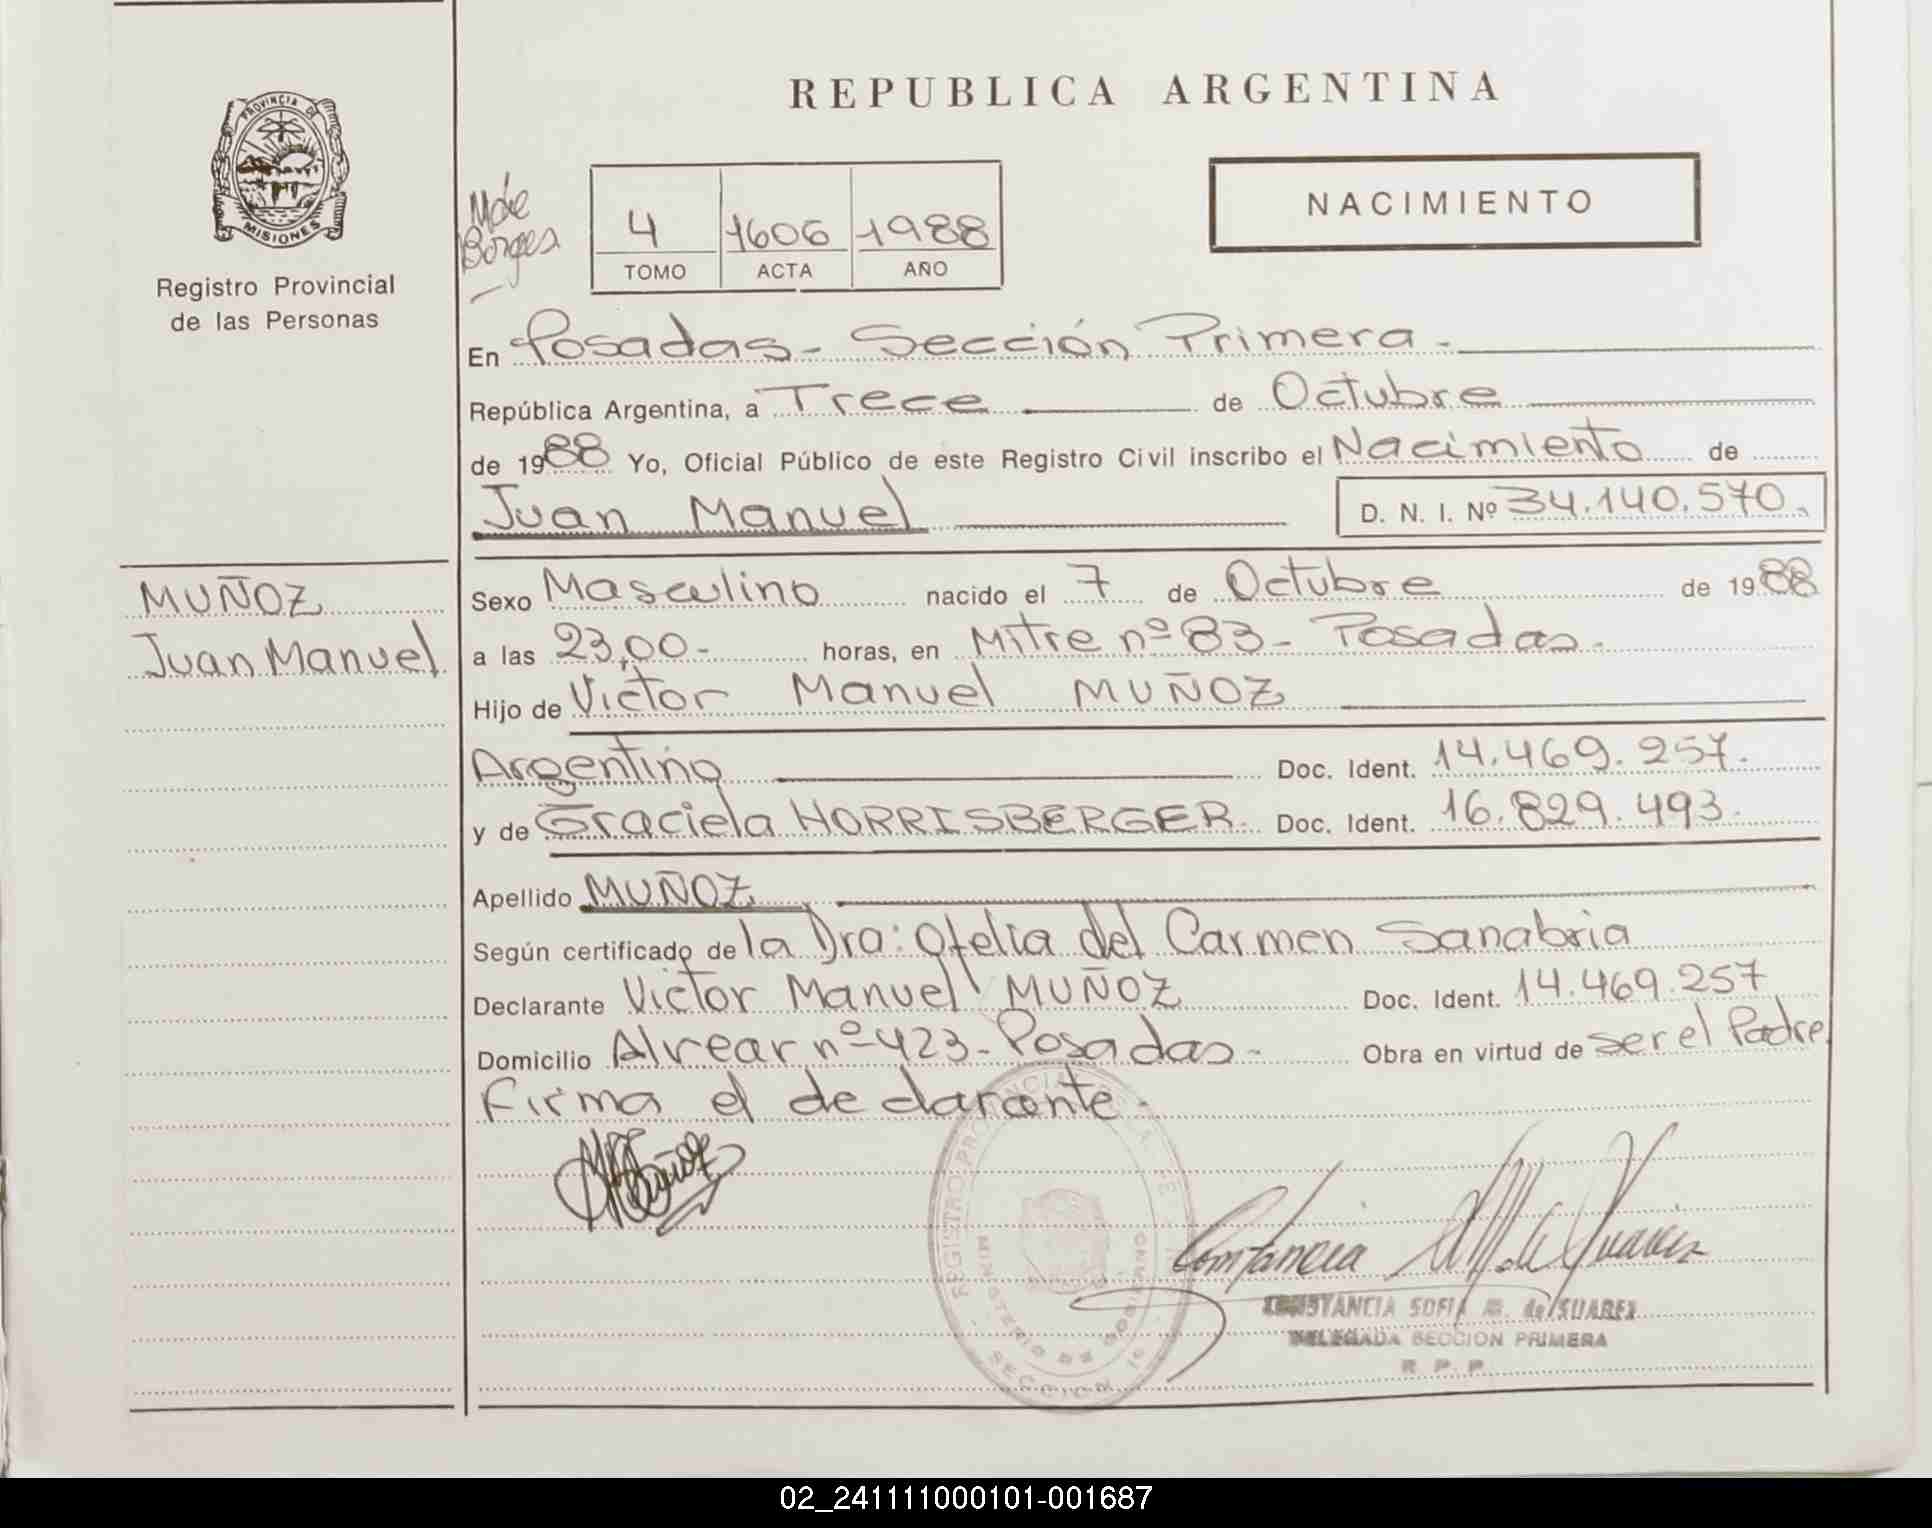 REPUBLICA ARGENTINA
PROVINCIA DE
MISIONES
Registro Provincial
de las Personas
Mde
Borges
4 1606 1988
TOMO ACTA AÑO
NACIMIENTO
En Posadas - Sección Primera -
República Argentina, a Trece de Octubre
de 1988 Yo, Oficial Público de este Registro Civil inscribo el Nacimiento de
Juan Manuel D. N. I. Nº 34.140.570.
MUÑOZ
Juan Manuel
Sexo Masculino nacido el 7 de Octubre de 1988
a las 23,00- horas, en Mitre nº 83 - Posadas -
Hijo de Victor Manuel MUÑOZ
Argentino Doc. Ident. 14.469.257.
y de Graciela HORRISBERGER. Doc. Ident. 16.829.493.
Apellido MUÑOZ
Según certificado de la Dra: Ofelia del Carmen Sanabria
Declarante Victor Manuel MUÑOZ Doc. Ident. 14.469.257
Domicilio Alvear nº 423 - Posadas - Obra en virtud de ser el Padre.
Firma el declarante -
REGISTRO PROVINCIAL DE
MINISTERIO DE GOBIERNO
SECCION 1ª
CONSTANCIA SOFIA M. de SUAREZ
DELEGADA SECCION PRIMERA
R. P. P.
02_241111000101-001687